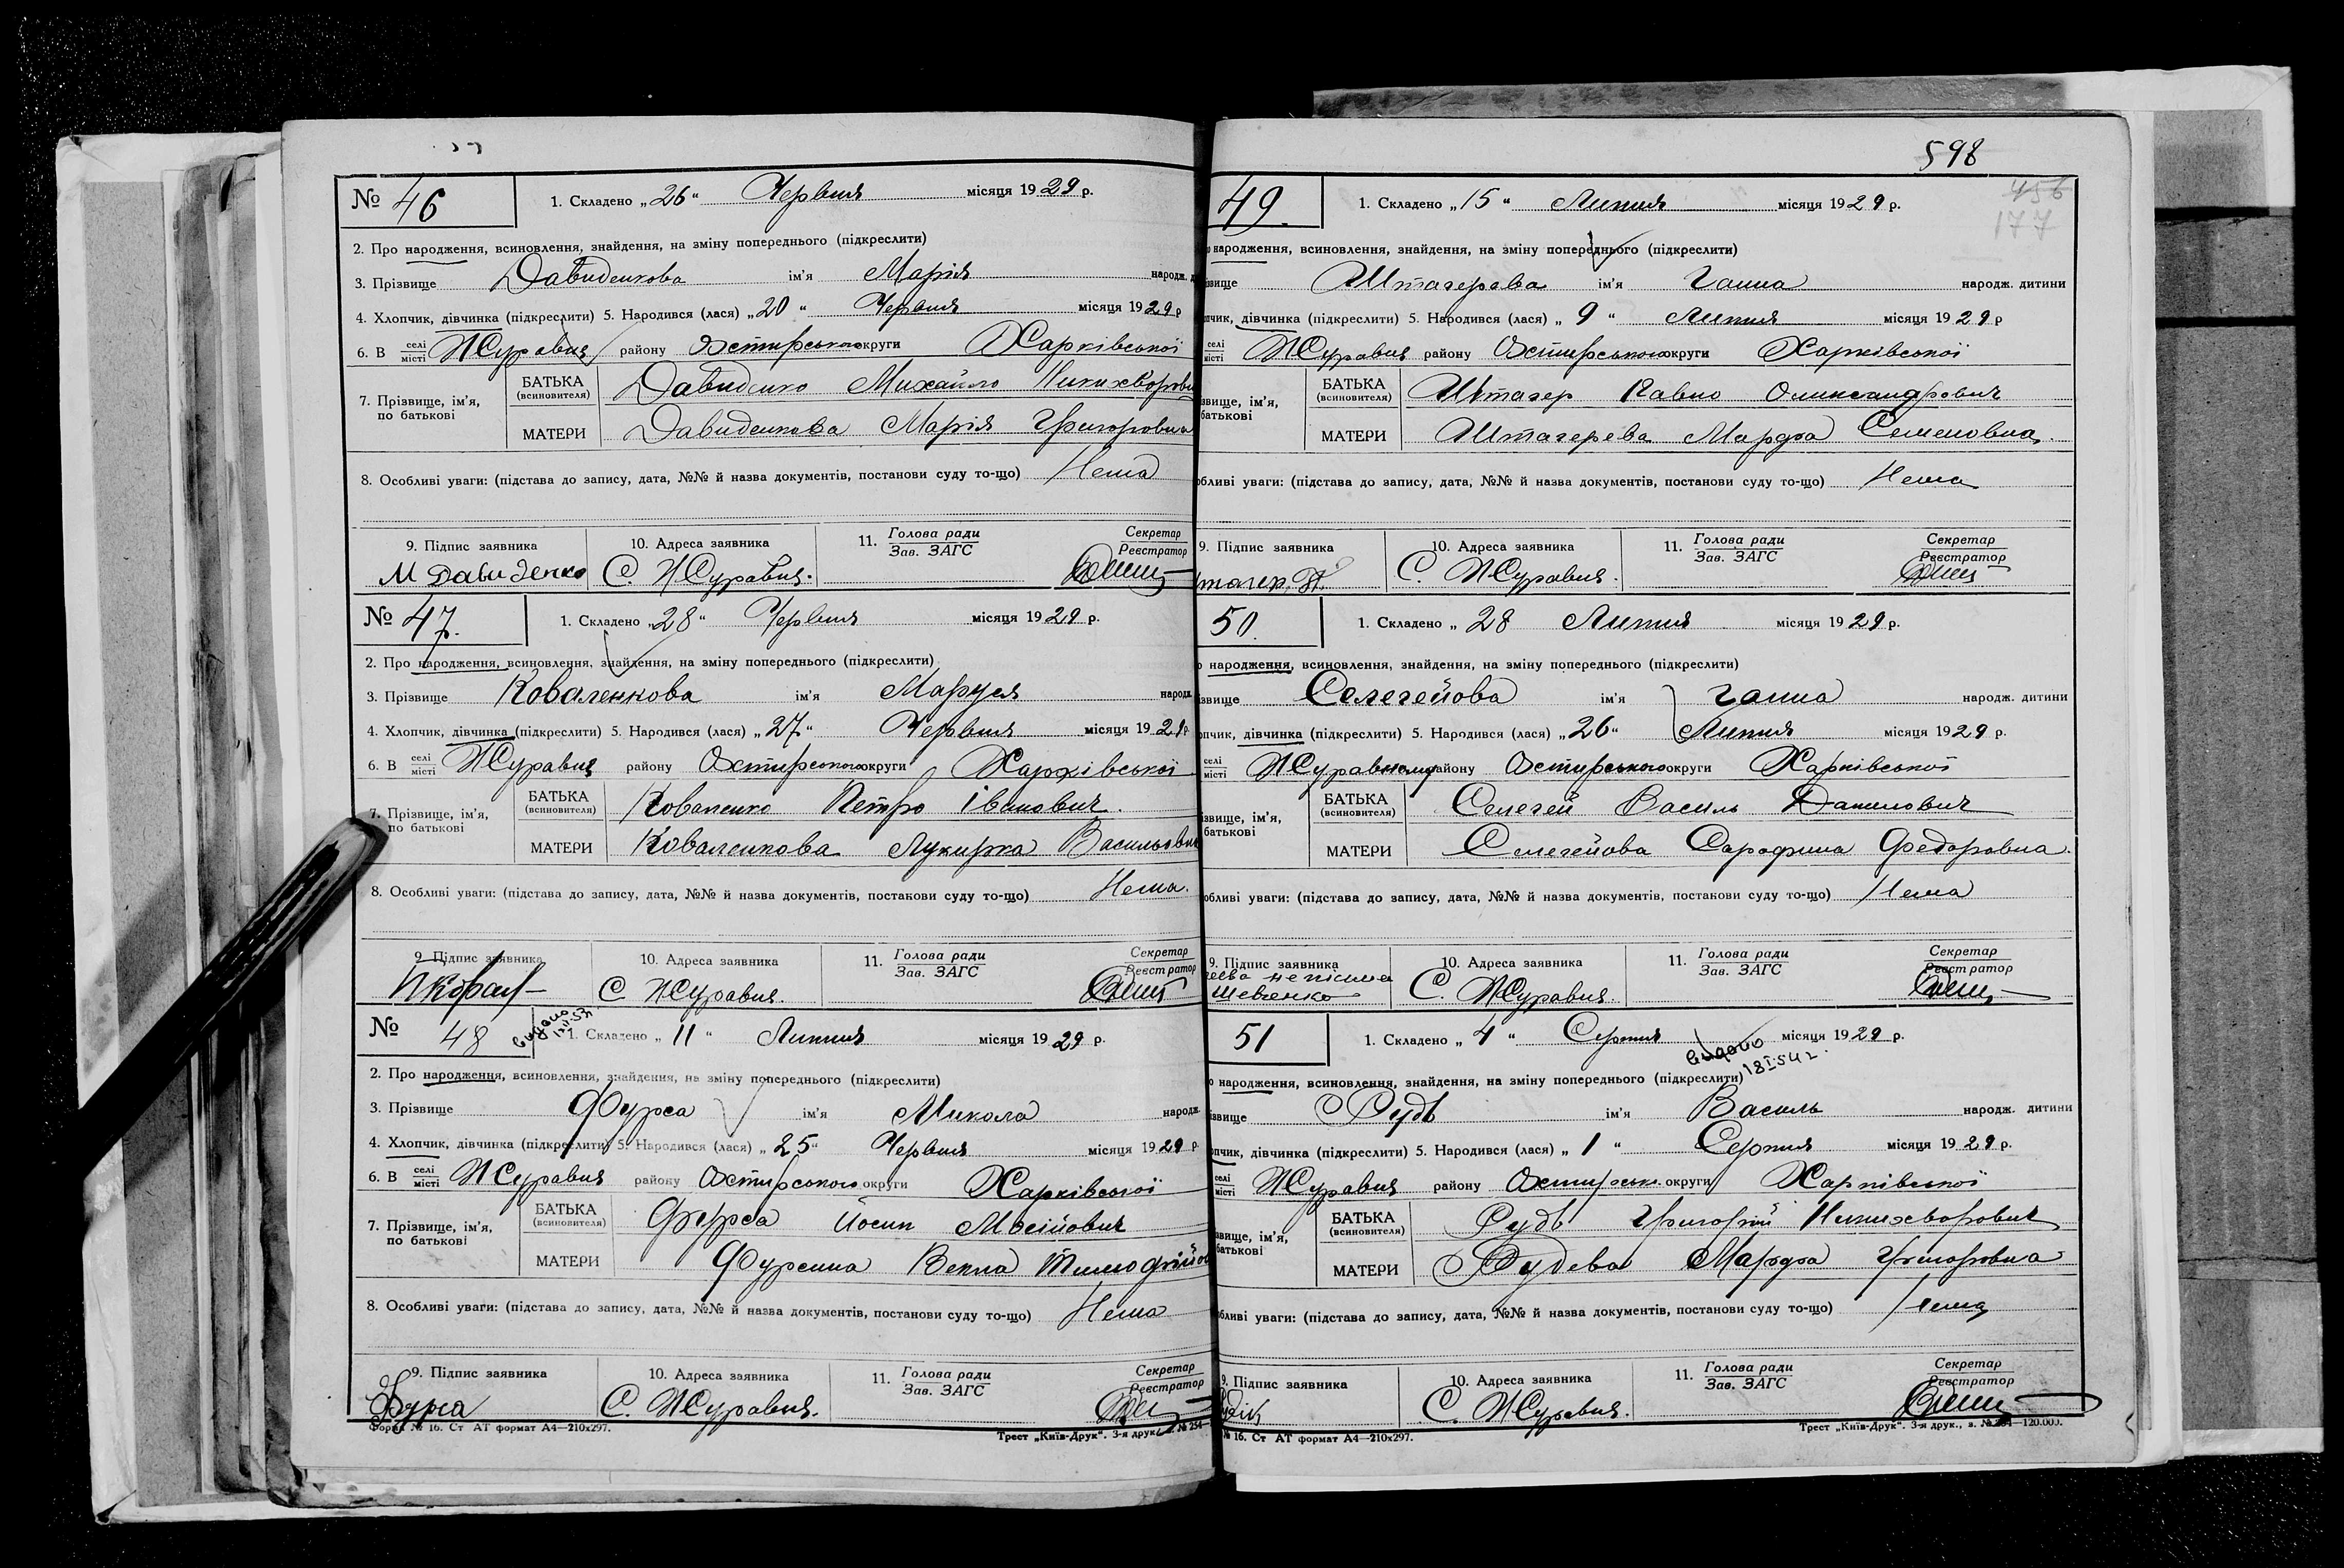 № 46 1. Складено „26“ Червня місяця 1929 р.
2. Про народження, всиновлення, знайдення, на зміну попереднього (підкреслити)
3. Прізвище Давиденкова ім'я Марія народж.
4. Хлопчик, дівчинка (підкреслити) 5. Народився (лася) „20“ Червня місяця 1929 р
6. В селі місті Журавня району Охтирського округи Харківської
7. Прізвище, ім'я, по батькові
БАТЬКА (всиновителя) Давиденко Михайло Никихворови
МАТЕРИ Давиденкова Марія Григоровна
8. Особливі уваги: (підстава до запису, дата, №№ й назва документів, постанови суду то-що) Нема
9. Підпис заявника 10. Адреса заявника 11. Голова ради Зав. ЗАГС Секретар Реєстратор
М Давиденко С. Журавня.
№ 47. 1. Складено „28“ Червня місяця 1929 р.
2. Про народження, всиновлення, знайдення, на зміну попереднього (підкреслити)
3. Прізвище Коваленкова ім'я Маруся народж.
4. Хлопчик, дівчинка (підкреслити) 5. Народився (лася) „27“ Червня місяця 1929 р
6. В селі місті Журавня району Охтирського округи Харківської
7. Прізвище, ім'я, по батькові
БАТЬКА (всиновителя) Коваленко Петро Іванович.
МАТЕРИ Коваленкова Лукирка Васильовн
8. Особливі уваги: (підстава до запису, дата, №№ й назва документів, постанови суду то-що) Нема.
9. Підпис заявника 10. Адреса заявника 11. Голова ради Зав. ЗАГС Секретар Реєстратор
С Журавня.
№ 48 видано 1. Складено „11“ Липня місяця 1929 р.
2. Про народження, всиновлення, знайдення, на зміну попереднього (підкреслити)
3. Прізвище Фурса ім'я Микола народж.
4. Хлопчик, дівчинка (підкреслити) 5. Народився (лася) „25“ Червня місяця 1929 р.
6. В селі місті Журавня району Охтирського округи Харківської
7. Прізвище, ім'я, по батькові
БАТЬКА (всиновителя) Фурса Йосип Мосійович
МАТЕРИ Фурсина Векла Тимофійов
8. Особливі уваги: (підстава до запису, дата, №№ й назва документів, постанови суду то-що) Нема
9. Підпис заявника 10. Адреса заявника 11. Голова ради Зав. ЗАГС Секретар Реєстратор
Фурса С. Журавня.
Форма № 16. Ст АТ формат А4—210х297. Трест „Київ-Друк“. 3-я друк., з. № 254
598
456
177
49. 1. Складено „15“ Липня місяця 1929 р.
народження, всиновлення, знайдення, на зміну попереднього (підкреслити)
звище Штагерева ім'я Ганна народж. дитини
пчик, дівчинка (підкреслити) 5. Народився (лася) „9“ Липня місяця 1929 р
селі місті Журавня району Охтирського округи Харківської
звище, ім'я, батькові
БАТЬКА (всиновителя) Штагер Павло Олександрович
МАТЕРИ Штагерева Марфа Семеновна.
обливі уваги: (підстава до запису, дата, №№ й назва документів, постанови суду то-що) Нема
9. Підпис заявника 10. Адреса заявника 11. Голова ради Зав. ЗАГС Секретар Реєстратор
тагер. П. С. Журавня.
50. 1. Складено „28 Липня місяця 1929 р.
народження, всиновлення, знайдення, на зміну попереднього (підкреслити)
звище Селегейова ім'я Ганна народж. дитини
пчик, дівчинка (підкреслити) 5. Народився (лася) „26“ Липня місяця 1929 р.
селі місті Журавному району Охтирського округи Харківської
звище, ім'я, батькові
БАТЬКА (всиновителя) Селегей Василь Данилович
МАТЕРИ Селегейова Сарафина Федоровна.
обливі уваги: (підстава до запису, дата, №№ й назва документів, постанови суду то-що) Нема
9. Підпис заявника 10. Адреса заявника 11. Голова ради Зав. ЗАГС Секретар Реєстратор
неписьма
Шевченко С. Журавня.
51 1. Складено „4“ Серпня місяця 1929 р.
видано 18 I 54
народження, всиновлення, знайдення, на зміну попереднього (підкреслити)
звище Рудь ім'я Василь народж. дитини
пчик, дівчинка (підкреслити) 5. Народився (лася) „1“ Серпня місяця 1929 р.
селі місті Журавня району Охтирськ. округи Харківської
звище, ім'я, батькові
БАТЬКА (всиновителя) Рудь Григорій Никихворович
МАТЕРИ Рудева Марфа Григоровна
бливі уваги: (підстава до запису, дата, №№ й назва документів, постанови суду то-що) Нема
9. Підпис заявника 10. Адреса заявника 11. Голова ради Зав. ЗАГС Секретар Реєстратор
С. Журавня.
№ 16. Ст АТ формат А4—210х297. Трест „Київ-Друк“. 3-я друк., з. № 254—120.000.